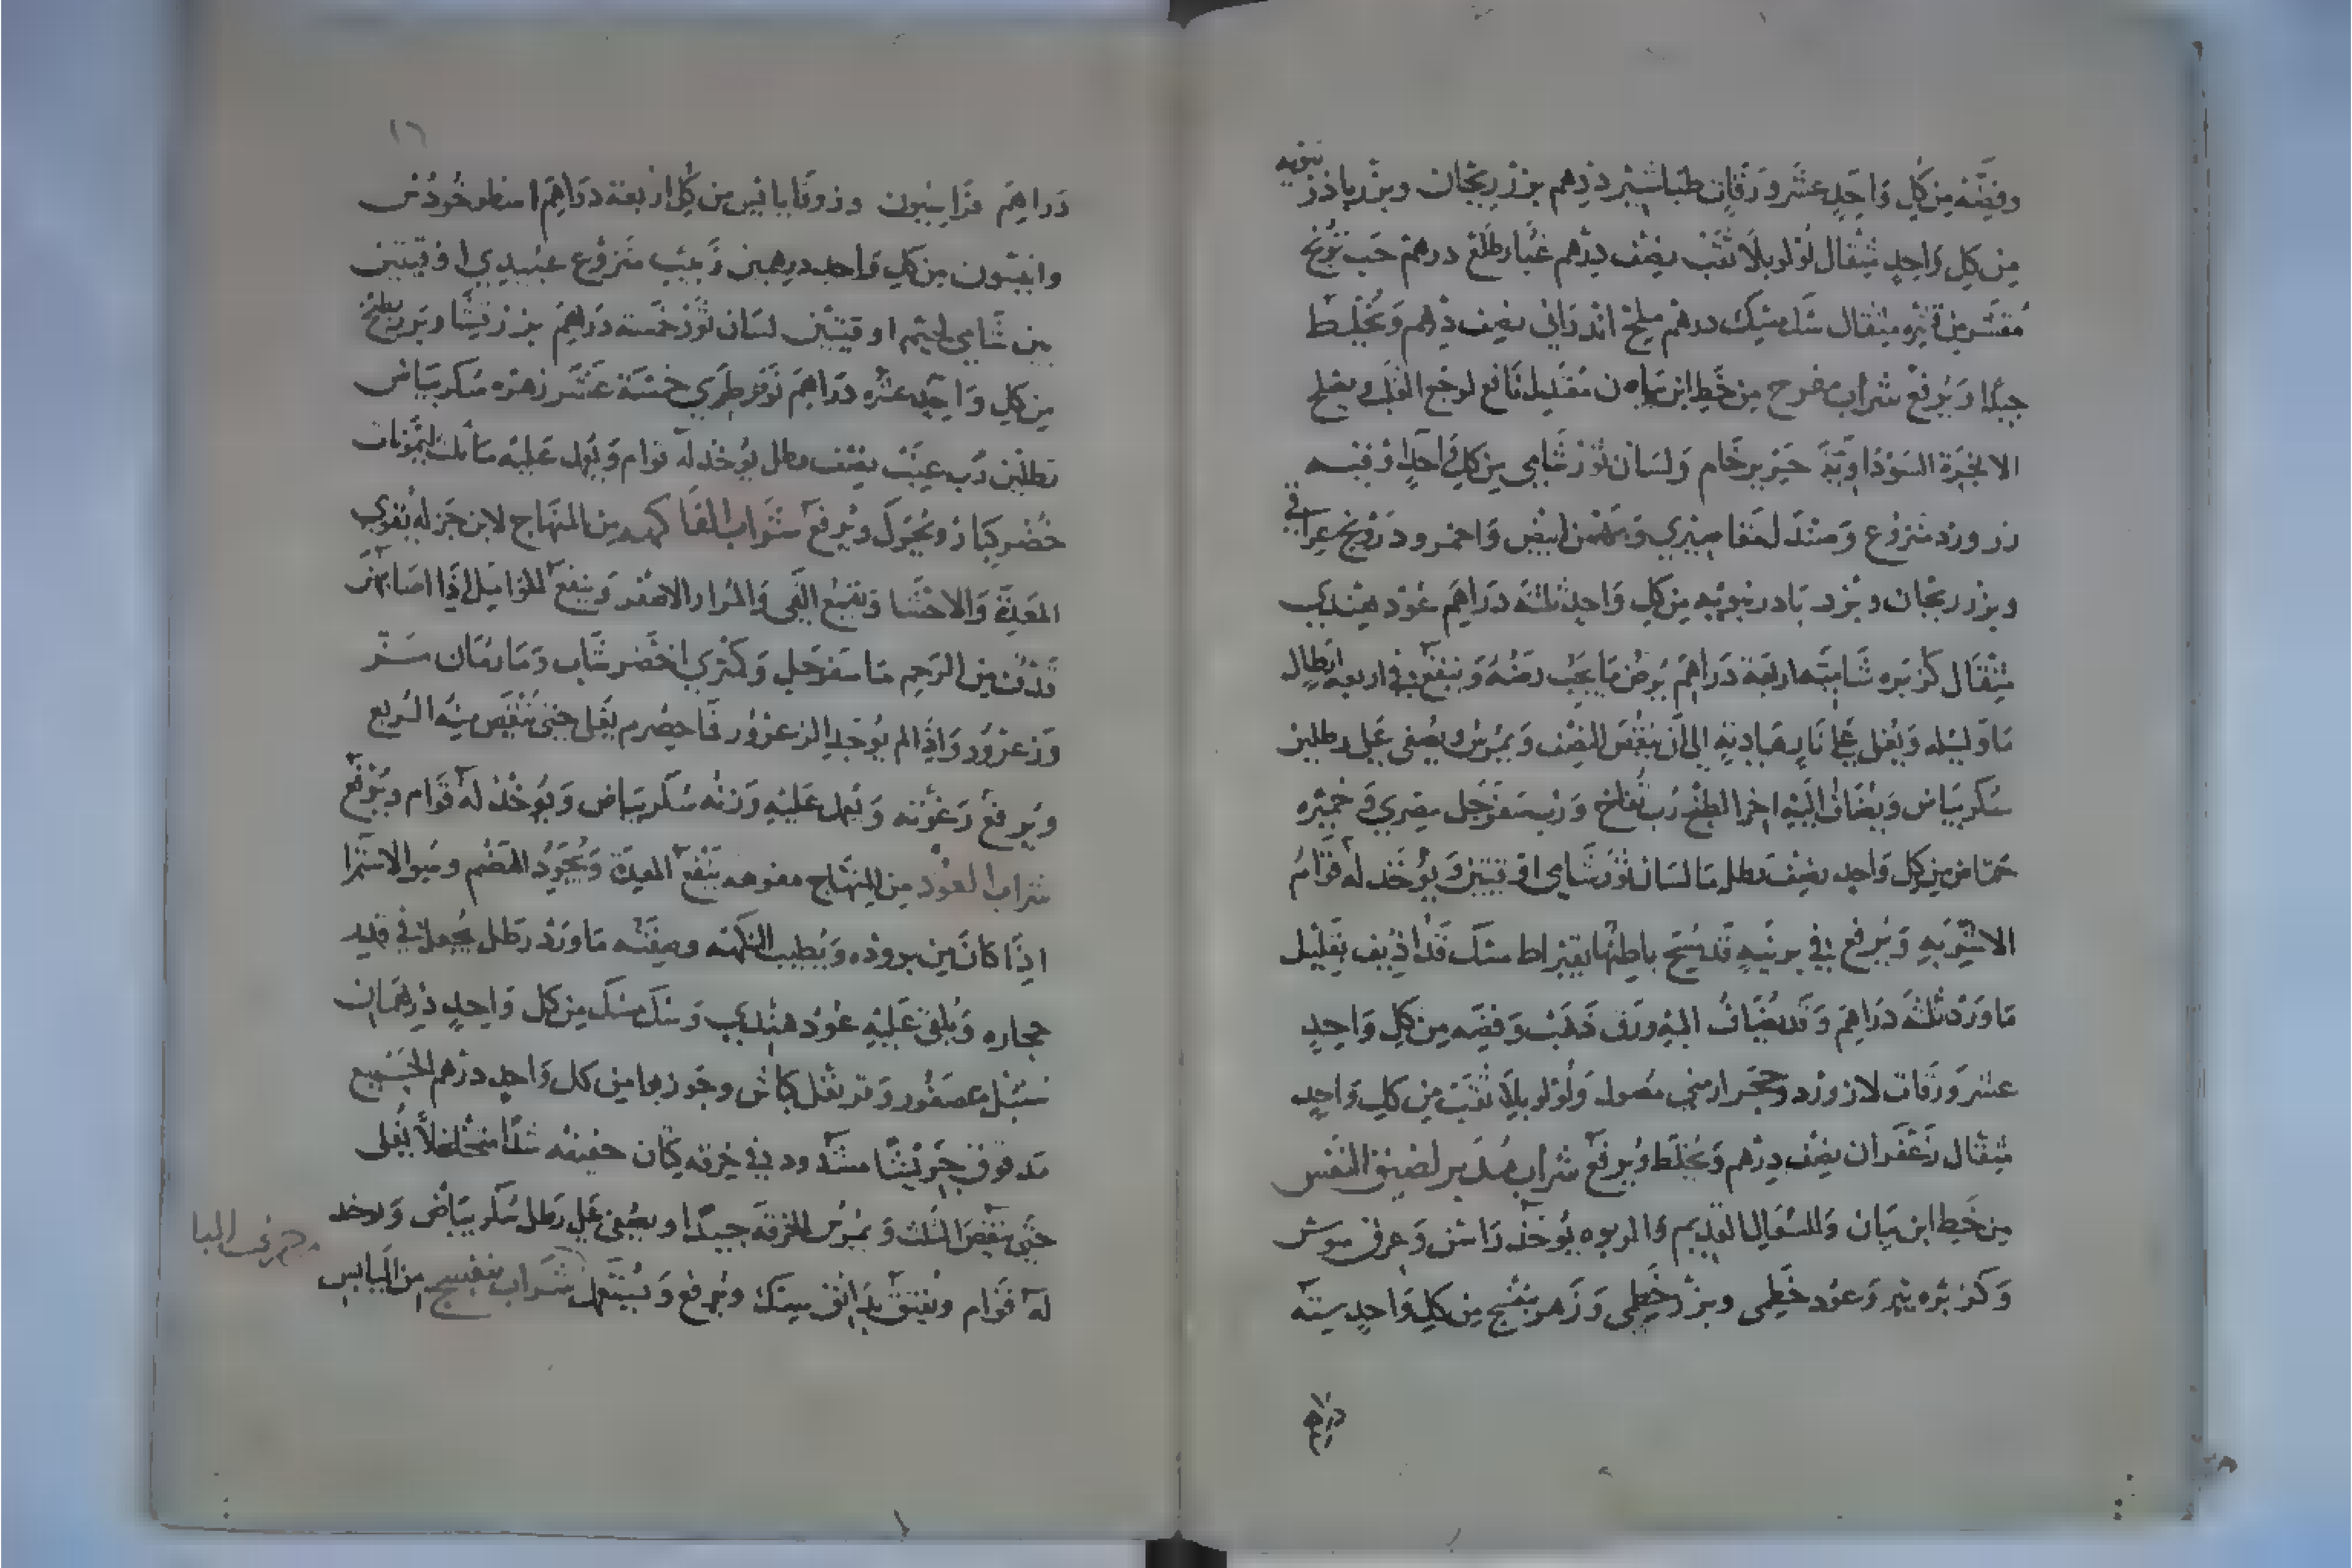 وفضه من كل واحد عشر ورقات طباشير درهم بزر ريحان وبزر باذرنبويه
من كل واحد مثقال لولو بلا ثقب نصف درهم غبار طلع درهم حب ترنج
مقشر من قشره مثقال سك مسك درهم ملح اندراني نصف درهم ويخلط
جيدا ويرفع شراب مفرح من خط ابن بيان معتدل نافع لوجع القلب ويصلح
الابخرة السوداويه حرير خام ولسان ثور شامي من كل واحد اوقيه
زر ورد منزوع وصندل مقاصيري وبهمن ابيض واحمر ودرونج عراقي
وبزر ريحان وبزر بادرنبويه من كل واحد ثلثة دراهم عود هندي
مثقال كزبره شاميه اربعة دراهم يرض ما يجب رضه وينقع في اربعة ارطال
ما وليله ويغلى على نار هاديه الى ان ينقص النصف ويمرس ويصفى على رطلين
سكر بياض ويضاف اليه اخر الطبخ رب تفاح ورب سفرجل مصري في خميره
حماض من كل واحد نصف رطل ما لسان ثور شامي اوقيتين ويوخذ له قوام
الاشربه ويرفع في برنيه قد سيح باطنها بقيراط مسك قد اذيف بقليل
ما ورد ثلثة دراهم وقد يضاف اليه ورق ذهب وفضه من كل واحد
عشر ورقات لازورد وحجر ارمني مصول ولولو بلا ثقب من كل واحد
مثقال زعفران نصف درهم ويخلط ويرفع شراب مدبر لضيق النفس
من خط ابن بيان وللسعال القديم والربوه يوخذ راسن وعرق سوس
وكزبره بير وعود خطمي وبزر خطمي وزهر بنفسج من كل واحد سته
دراهم
١٦
دراهم فراسيون وزوفا يابس من كل اربعة دراهم اسطوخودس
وانيسون من كل واحد درهمين زبيب منزوع عبيدي اوقيتين
تين شامي لحيم اوقيتين لسان ثور خمسة دراهم بزر قثا وبزر بطيخ
من كل واحد عشره دراهم نوفر طري خمسة عشر زهره سكر بياض
رطلين رب عنب نصف رطل يوخذ له قوام ويعمل عليه ما ثلث ليمونات
خضر كبار ويحرك ويرفع شراب الفاكهه من المنهاج لابن جزله يقوي
المعدة والاحشا ويقمع القي والمرار الاصفر وينفع للحوامل اذا اصابهن
قذف من الرحم ما سفرجل وكمثري اخضر شاب وما رمان مز
وزعرور واذا لم يوجد الزعرور فا حصرم يغلى حتى ينقص منه الربع
ويرفع رغوته ويعمل عليه وزنه سكر بياض ويوخذ له قوام ويرفع
شراب العود من المنهاج مفوهه ينفع المعدة ويجود الهضم وسو الاستمرا
اذا كان من بروده ويطيب النكهه وصفته ما ورد رطل يجعل في قدر
حجاره ويلقى عليه عود هندي وسك مسك من كل واحد درهمان
سنبل عصفور وقرنفل كباش وجوزبوا من كل واحد درهم الجميع
مدقوق جريشا مشدود في خرقه كتان خفيفه شدا متخلخلا يغلى
حتى ينقص الثلث ويمرس الخرقه جيدا ويصفى على رطل سكر بياض ويوخذ
له قوام ويفتق بدانق مسك ويرفع ويستعمل شراب بنفسج من اليابس